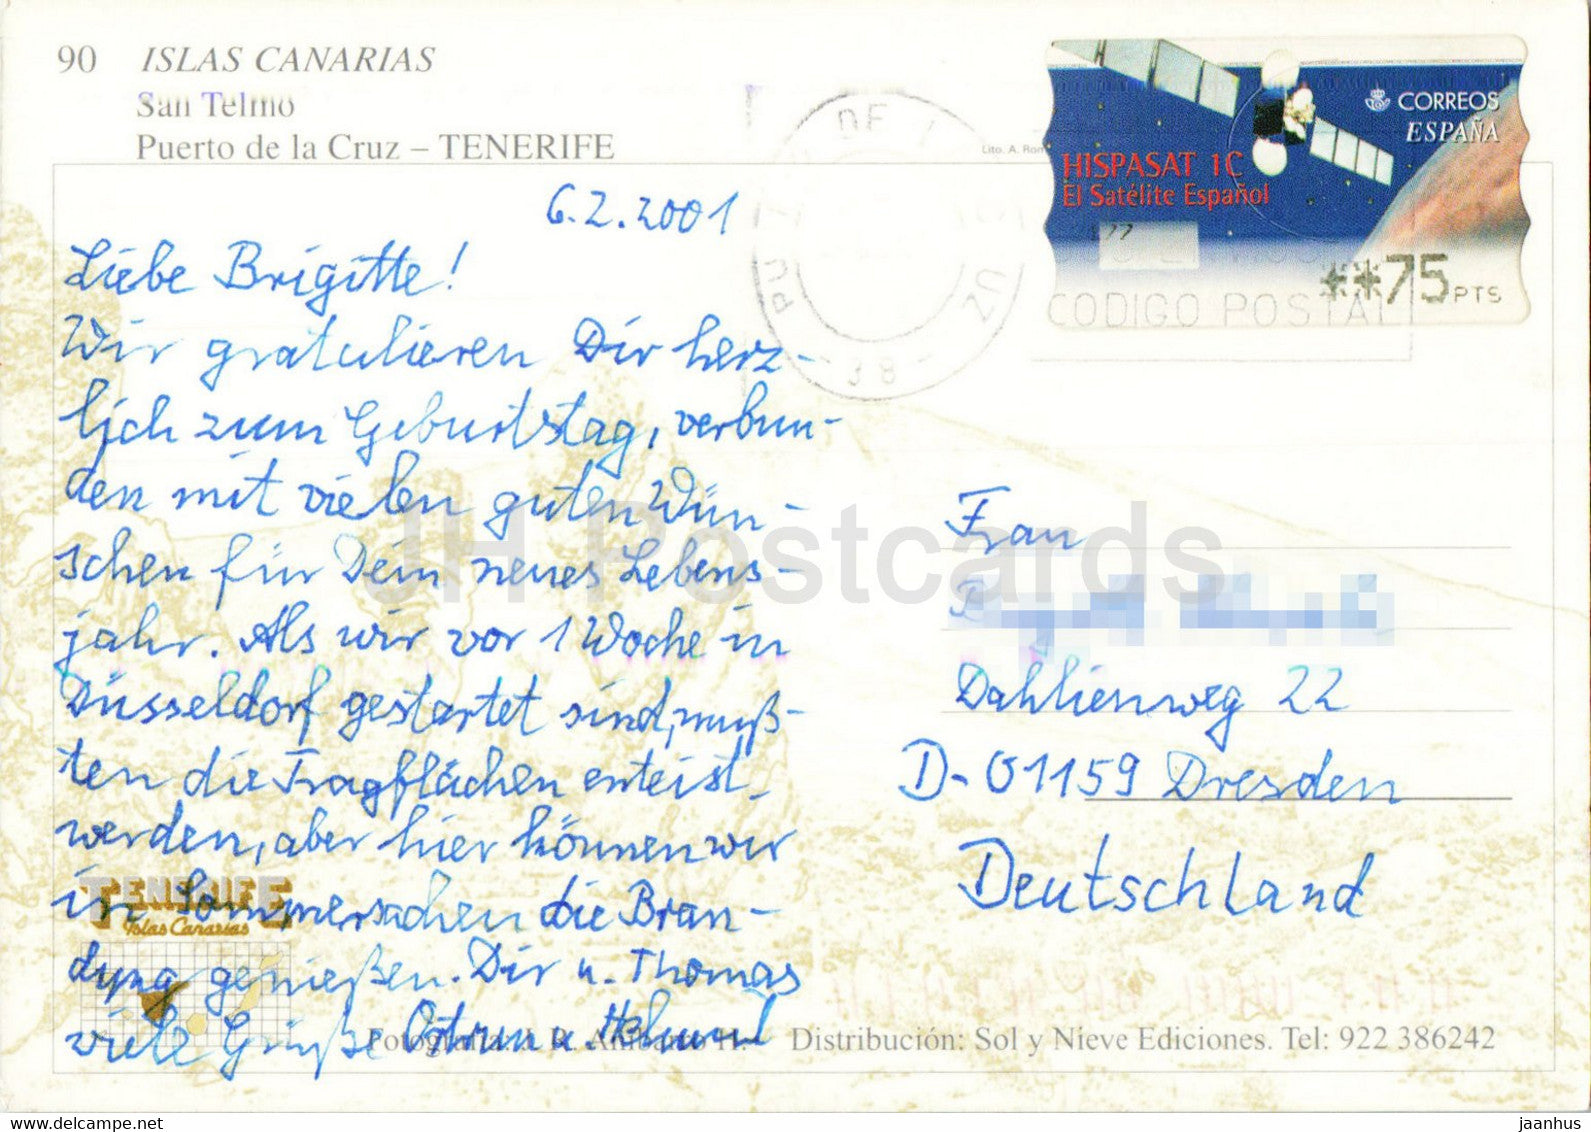 90 ISLAS CANARIAS
San Telmo
Puerto de la Cruz – TENERIFE
Lito. A. Rom
CORREOS
ESPAÑA
HISPASAT 1C
El Satélite Español
**75 PTS
CODIGO POSTAL
DE L
38
6.2.2001
Liebe Brigitte!
Wir gratulieren Dir herz-
lich zum Geburtstag, verbun-
den mit vielen guten Wün-
schen für Dein neues Lebens-
jahr. Als wir vor 1 Woche in
Düsseldorf gestartet sind, muß-
ten die Tragflächen enteist
werden, aber hier können wir
in Sommersachen die Bran-
dung genießen. Dir u. Thomas
viele Grüße u. Helmut
Frau
Dahlienweg 22
D-01159 Dresden
Deutschland
TENERIFE
Islas Canarias
Distribución: Sol y Nieve Ediciones. Tel: 922 386242
JH Postcards
https://www.delcampe.net
jaanhus